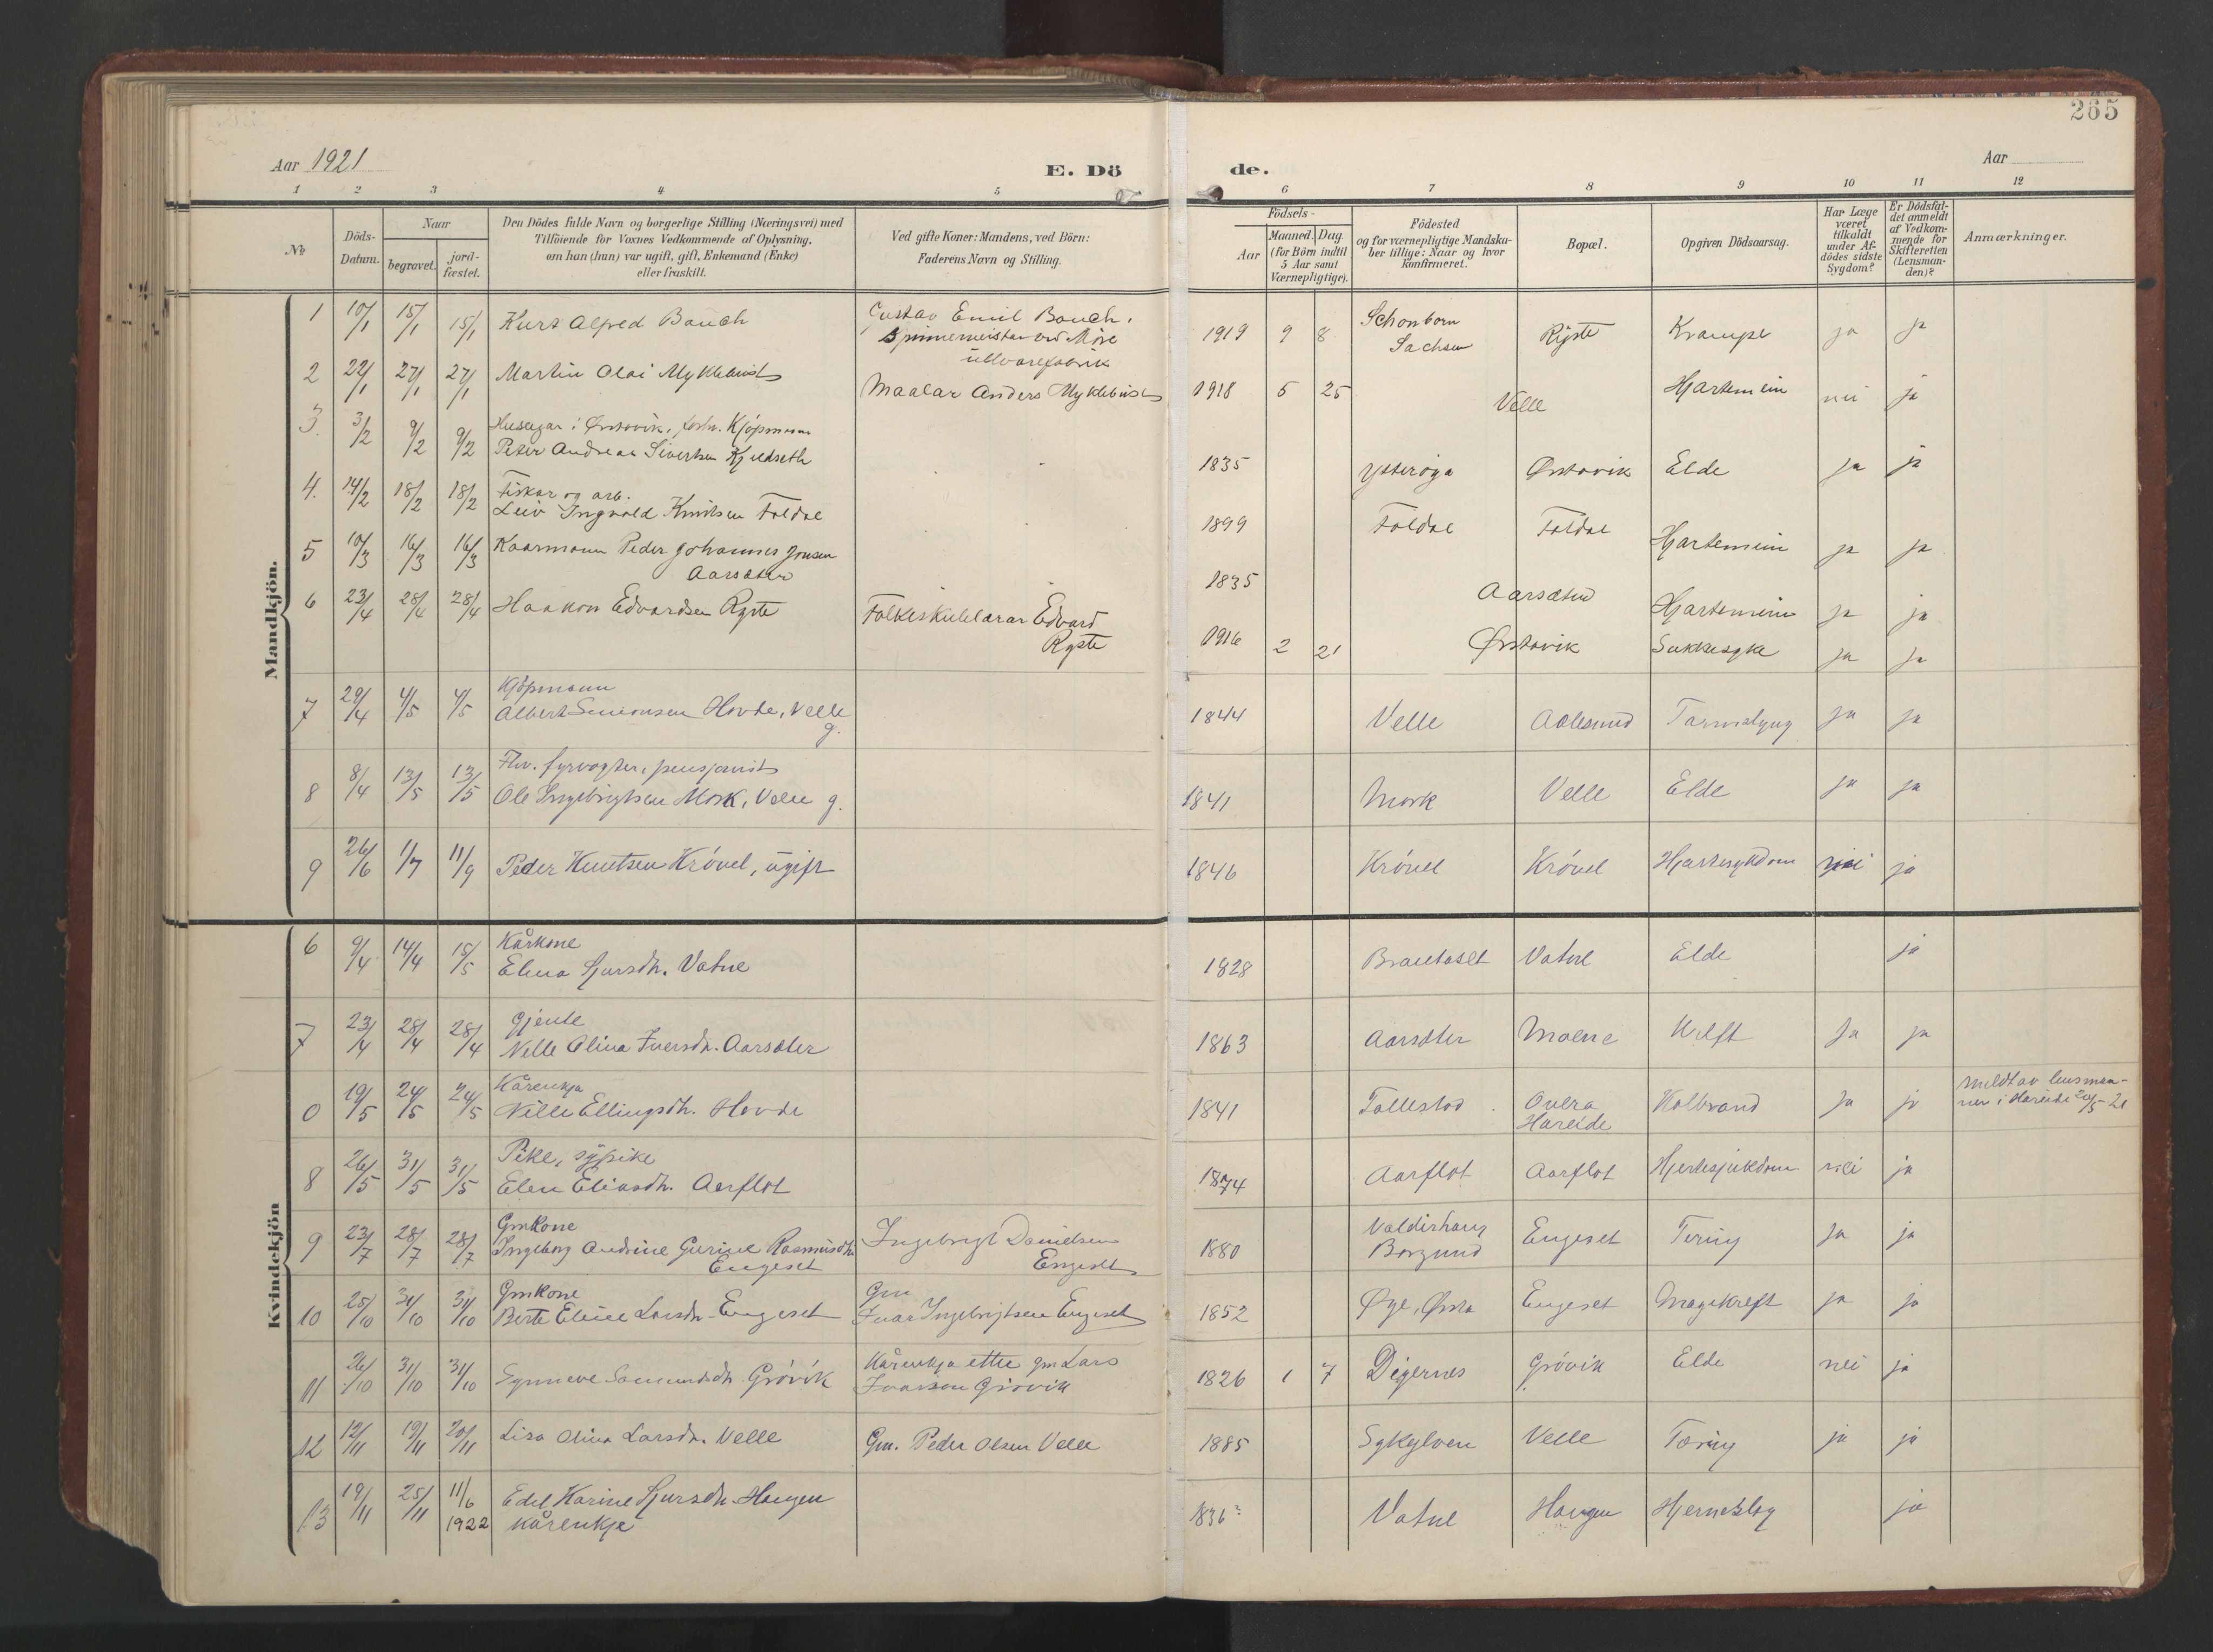 265
Aar 1921
E. Dö
de.
Aar
1 2 3 4 5 6 7 8 9 10 11 12
No
Döds-Datum.
Naar
begravet.
jord-fæstet.
Den Dödes fulde Navn og borgerlige Stilling (Næringsvei) med
Tilföiende for Voxnes Vedkommende af Oplysning,
om han (hun) var ugift, gift, Enkemand (Enke)
eller fraskilt.
Ved gifte Koner: Mandens, ved Börn:
Faderens Navn og Stilling.
Födsels-
Aar
Maaned. Dag
(for Börn indtil
5 Aar samt
Værnepligtige).
Födested
og for værnepligtige Mandska-
ber tillige: Naar og hvor
konfirmeret.
Bopæl.
Opgiven Dödsaarsag.
Har Læge
været
tilkaldt
under Af-
dödes sidste
Sygdom?
Er Dödsfal-
det anmeldt
af Vedkom-
mende for
Skifteretten
(Lensman-
den)?
Anmærkninger.
Mandkjön.
1 10/1 15/1 15/1 Kurt Alfred Bauch
Gustav Emil Bauch,
Spinnemeister ved Møre
ullvarefabrik
1919 9 8 Schonborn
Sachsen
Ryste Krampe ja ja
2 22/1 27/1 27/1 Martin Olai Myklebust
Maalar Anders Myklebust 1918 5 25 Velle Hjartemein nei ja
3. 3/2 9/2 9/2 Huseigar i Ørstavik, forh. Kjøpmann
Peter Andreas Sivertsen Kjeldseth
1835 Ytterøya Ørstavik Elde ja ja
4. 14/2 18/2 18/2 Fiskar og arb.
Leiv Ingvald Knutsen Foldal
1899 Foldal Foldal Hjartemein ja ja
5 10/3 16/3 16/3 Kaarmann Peder Johannes Jonsen
Aarsæter
1835 Aarsæter Hjartemein ja ja
6 23/4 28/4 28/4 Haakon Edvardsen Ryste
Folkeskulelærar Edvard
Ryste
1916 2 21 Ørstavik Sukkesyke ja ja
7 29/4 4/5 4/5 Kjøpmann
Albert Simonsen Hovde, Velle
g.
1844 Velle Aalesund Tarmslyng ja ja
8 8/4 13/5 13/5 Fhv. fyrvogter, pensjonist
Ole Ingebrigtsen Mork, Velle g.
1841 Mork Velle Elde ja ja
9 26/6 1/7 11/9 Peder Knutsen Krövel, ugift
1846 Krövel Krövel Hjartesykdom nei ja
Kvindekjön
6 9/4 14/4 15/5 Kårkone
Elena Sjursdtr. Vatne
1828 Brautaset Vatne Elde ja
7 23/4 28/4 28/4 Gjente
Nelle Olina Iversdtr. Aarsæter
1863 Aarsæter Moene Kreft ja ja
0 19/5 24/5 24/5 Kårenkja
Nille Ellingsdtr. Hovde
1841 Follestad Øvera
Hareide
Kolbrand ja ja meldt av lensman-
nen i Hareide 20/5 21
8 26/5 31/5 31/5 Pike, sypike
Elen Eliasdtr. Aarflot
1874 Aarflot Aarflot Hjertesjukdom nei ja
9 23/7 28/7 28/7 Gmkone
Ingeborg Andrine Gurine Rasmusdtr.
Engeset
Ingebrigt Danielsen
Engeset
1880 Valderhaug
Borgund
Engeset Tæring ja ja
10 25/10 31/10 31/10 Gmkone
Berte Eline Larsdtr. Engeset
Gm
Ivar Ingebrigtsen Engeset
1852 Øye, Ørsta Engeset Magekreft ja ja
11 26/10 31/10 31/10 Synneve Samundsdtr. Grövik
Kårenkja etter gm Lars
Ivarson Grövik
1826 1 7 Digernes Grövik Elde nei ja
12 12/11 19/11 20/11 Lisa Olina Larsdtr. Velle
Gm. Peder Olsen Velle
1885 Sykylven Velle Tæring ja ja
13 19/11 25/11 11/6
1922
Edel Karine Sjursdtr. Haugen
kårenkje
1836? Vatne Haugen Hjerneslag ja